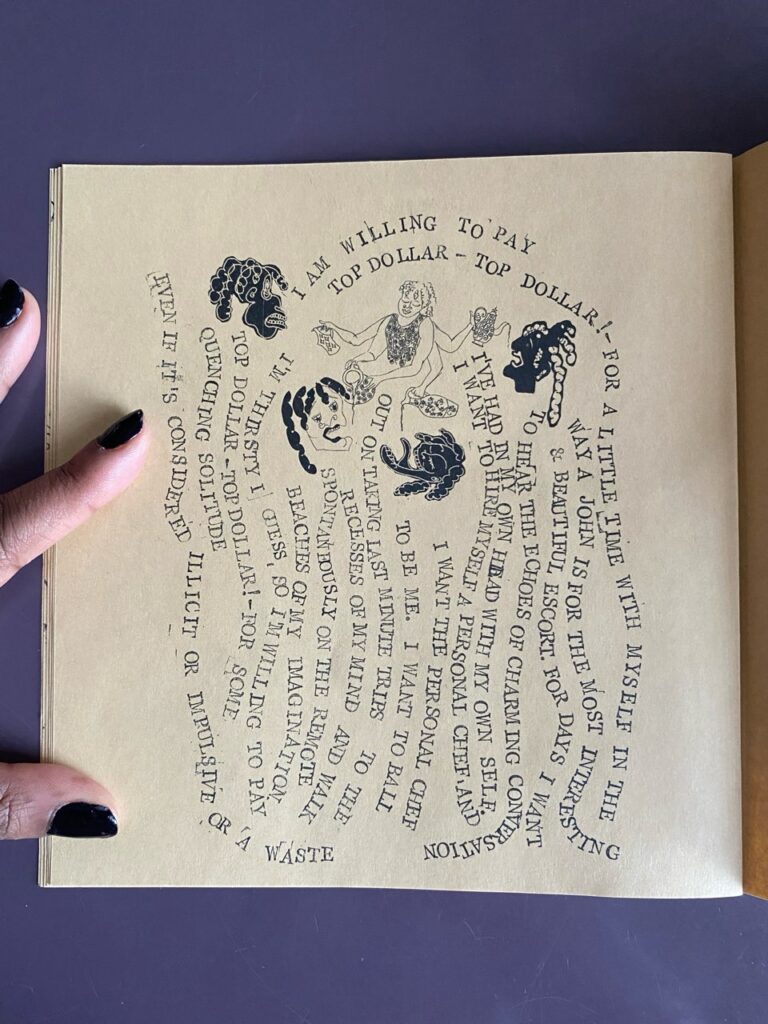 I AM WILLING TO PAY
TOP DOLLAR – TOP DOLLAR! – FOR A LITTLE TIME WITH MYSELF IN THE
WAY A JOHN IS FOR THE MOST INTERESTING
& BEAUTIFUL ESCORT. FOR DAYS I WANT
TO HEAR THE ECHOES OF CHARMING CONVERSATION
I'VE HAD IN MY OWN HEAD WITH MY OWN SELF.
I WANT TO HIRE MYSELF A PERSONAL CHEF, AND
I WANT THE PERSONAL CHEF
TO BE ME. I WANT TO BALL
OUT ON TAKING LAST MINUTE TRIPS TO THE
RECESSES OF MY MIND AND WALK
SPONTANEOUSLY ON THE REMOTE
BEACHES OF MY IMAGINATION.
I'M THIRSTY I GUESS, SO I'M WILLING TO PAY
TOP DOLLAR – TOP DOLLAR! – FOR SOME
QUENCHING SOLITUDE
EVEN IF IT'S CONSIDERED ILLICIT OR IMPULSIVE OR A WASTE